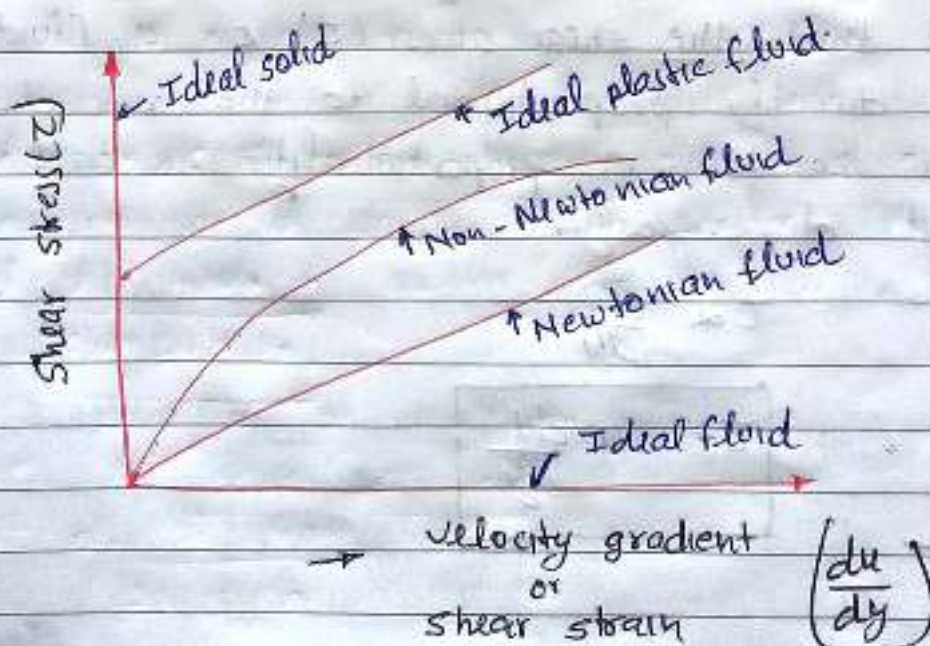 Ideal solid
Ideal plastic fluid.
Non-Newtonian fluid.
Newtonian fluid
Ideal fluid
Shear stress (τ)
→ velocity gradient
or
shear strain
(du/dy)